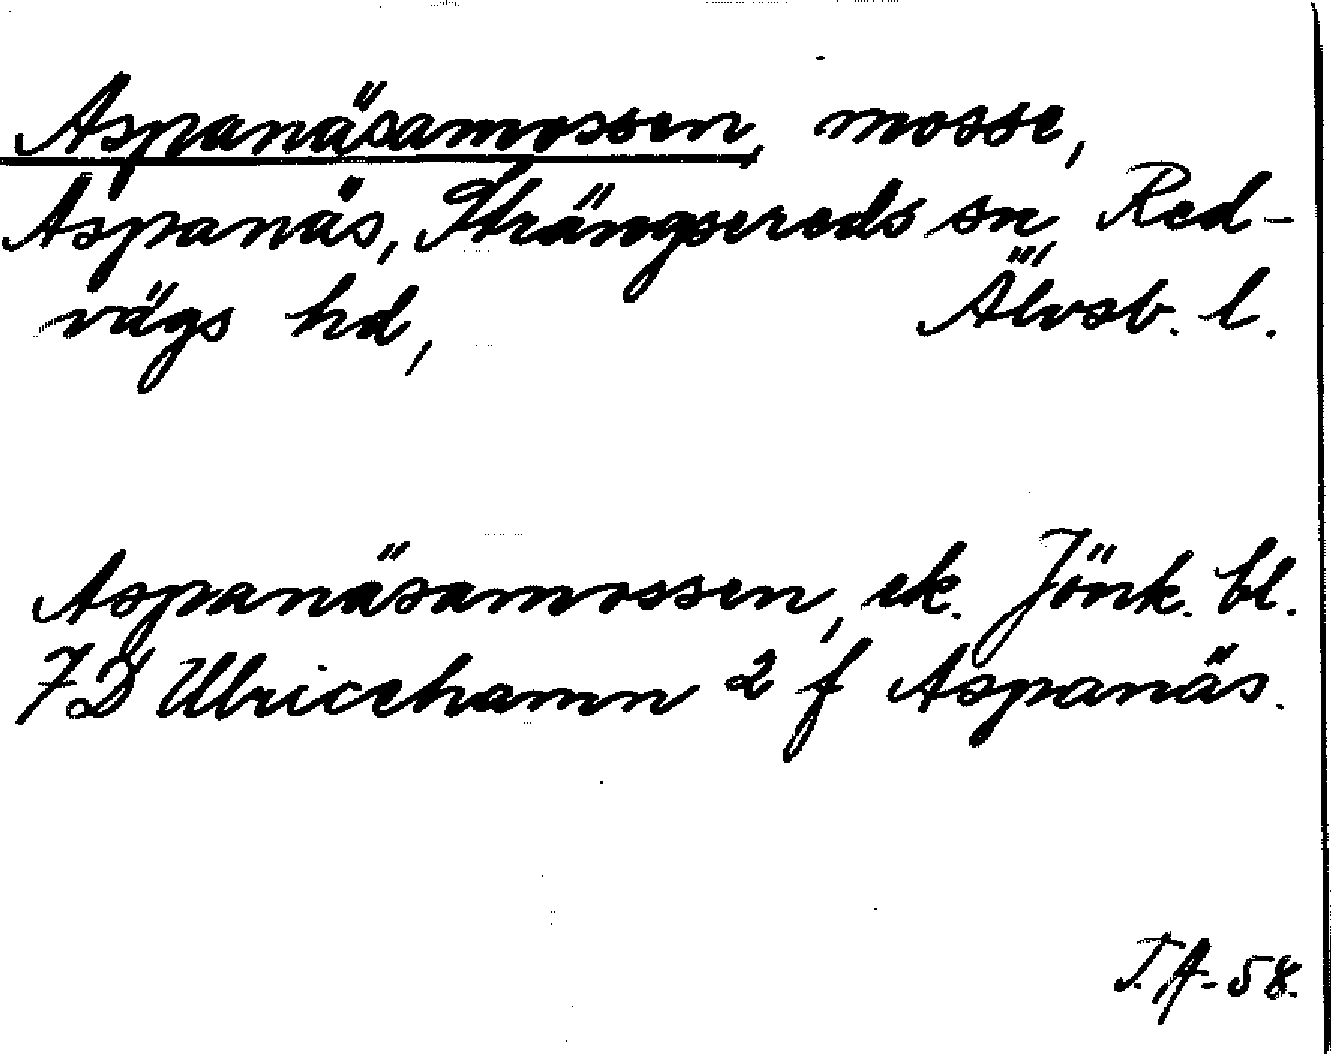 Aspanäsamossen, mosse,
Aspanäs, Strängsereds sn, Red-
vägs hd, Älvsb. l.
Aspanäsamossen, ek. Jönk. bl.
7D Ulricehamn 2 f Aspanäs.
T.A-58.